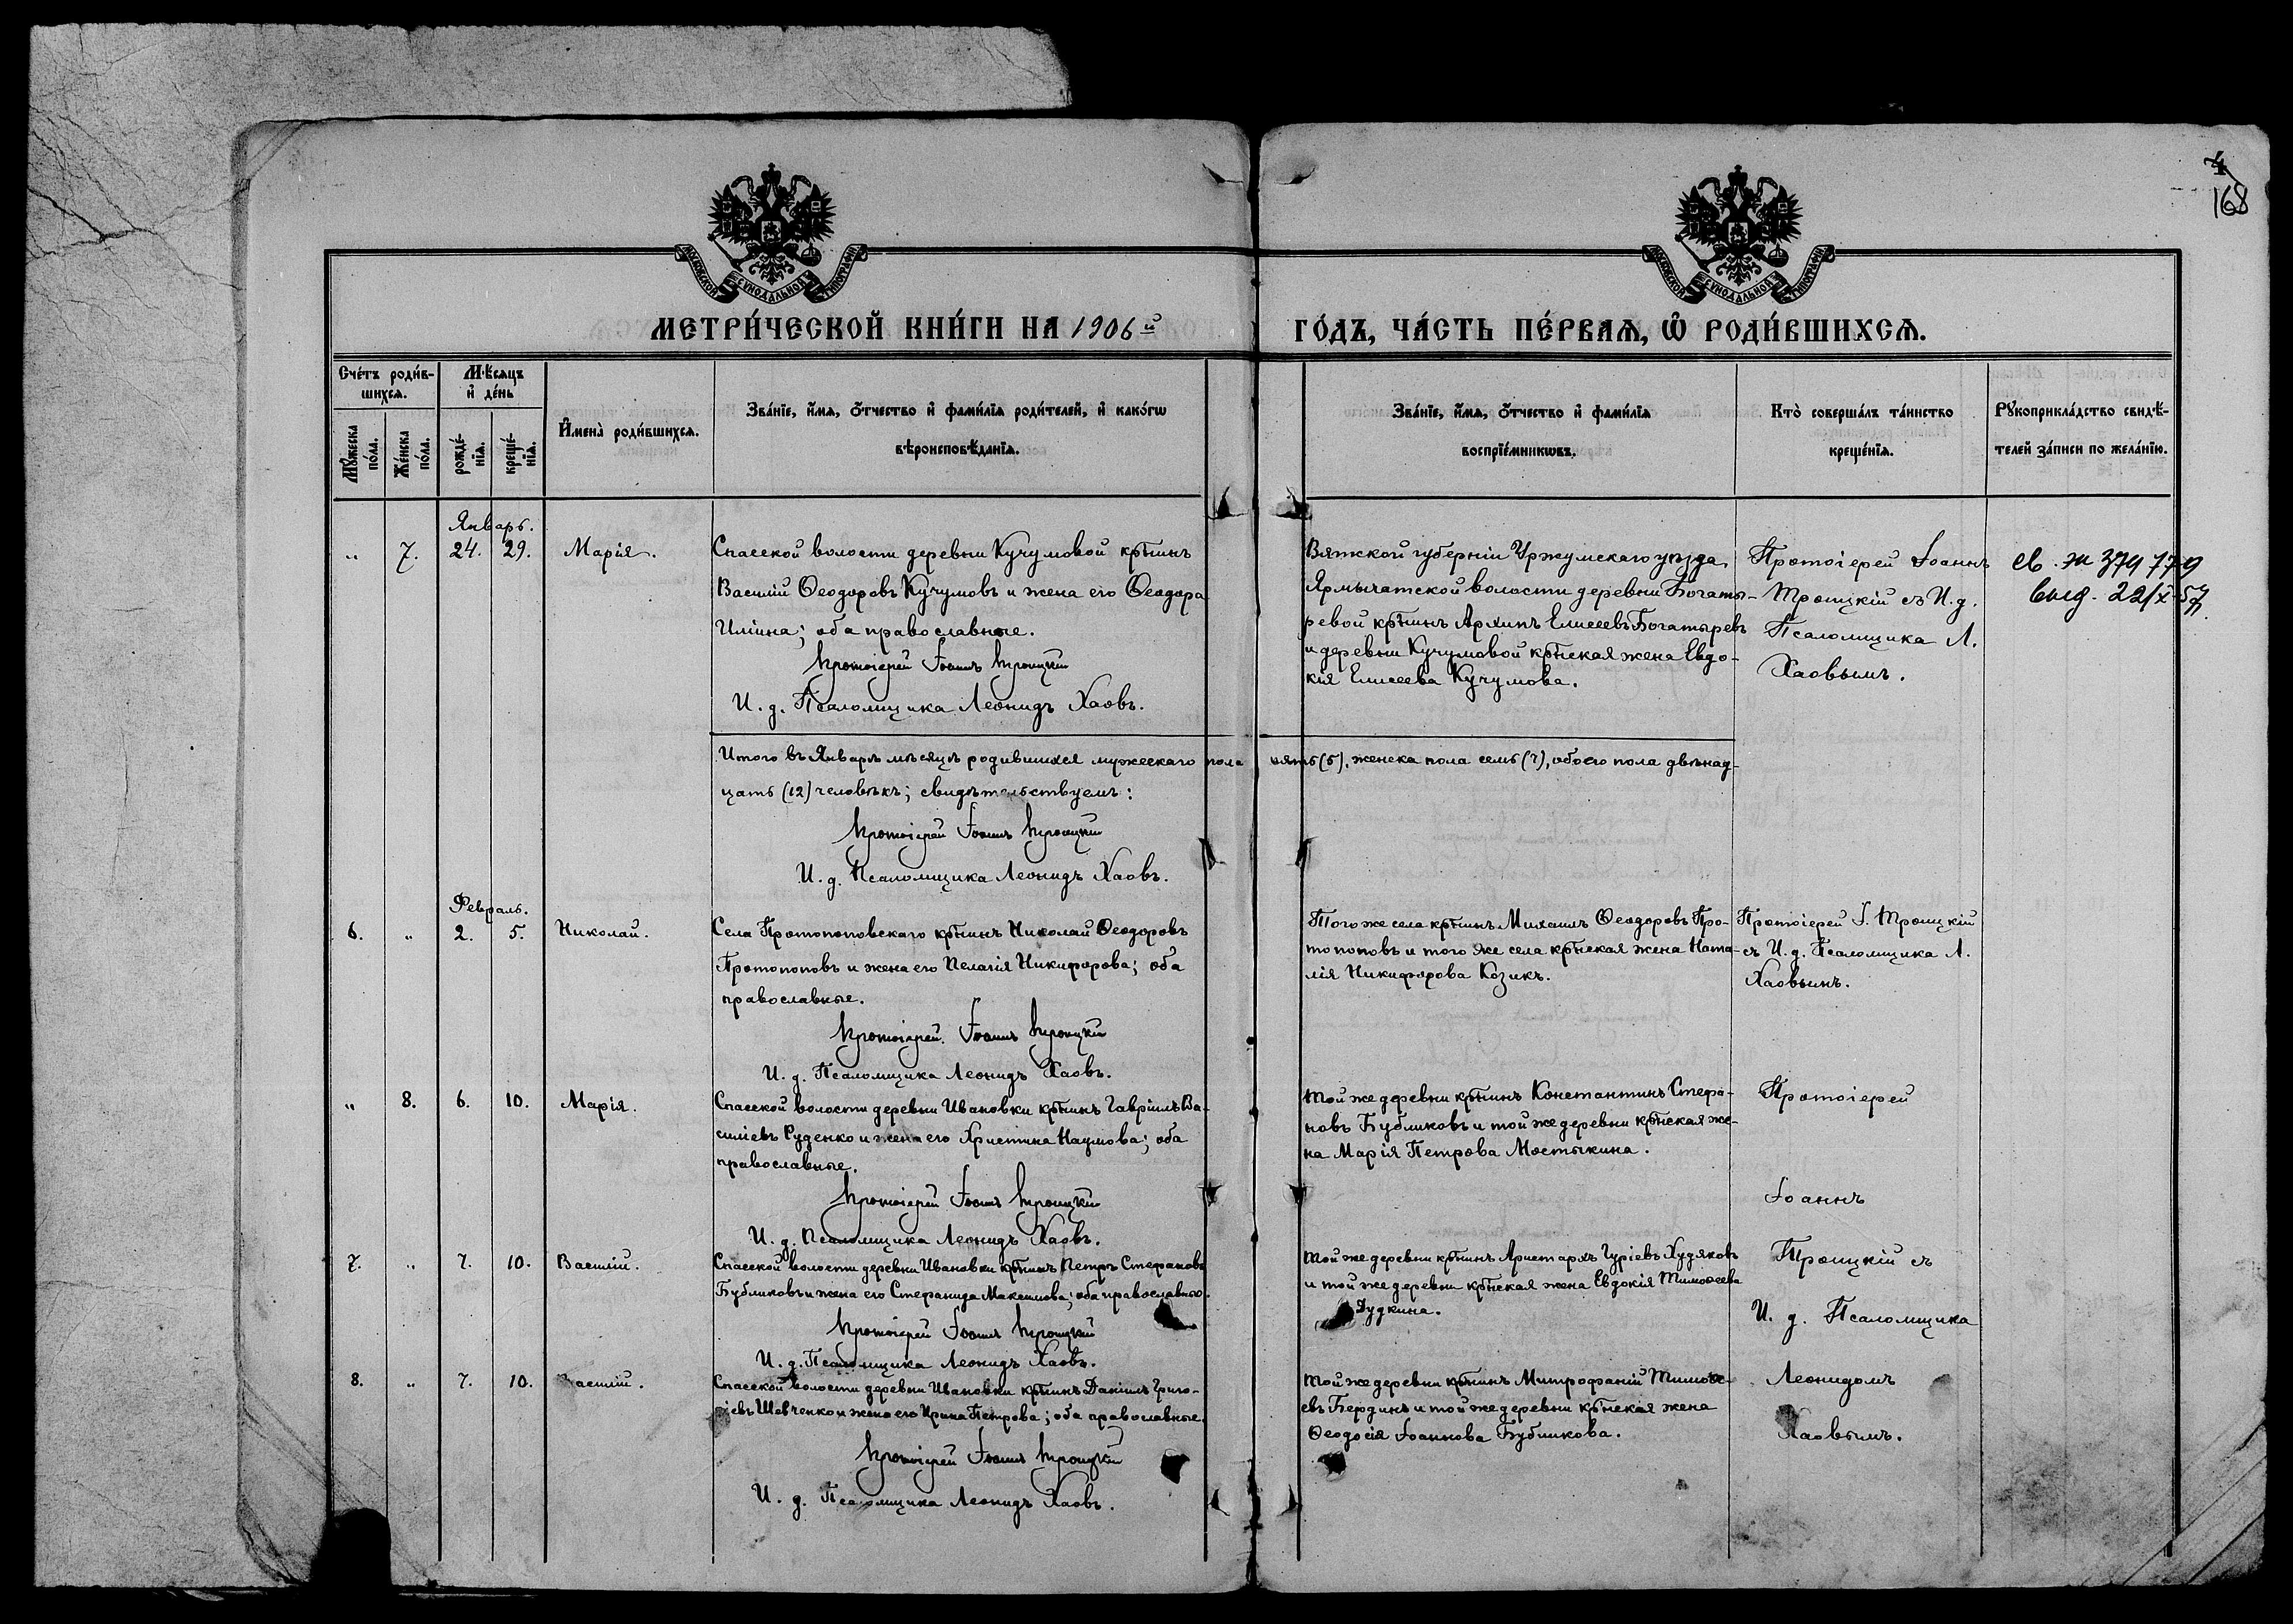 4
168
МОСКОВСКОЙ СУНОДАЛЬНОЙ ТИПОГРАФІИ
МОСКОВСКОЙ СУНОДАЛЬНОЙ ТИПОГРАФІИ
МЕТРИ́ЧЕСКОЙ КНИ́ГИ НА 1906й ГО́ДЪ, ЧА́СТЬ ПЕ́РВАѦ, Ѡ҆ РОДИ́ВШИХСѦ.
Сче́тъ роди́в-
шихся.
Мѣ́сяцъ
и҆ де́нь
Мꙋ́жеска по́ла.
Же́нска по́ла.
рожде́-нїѧ.
креще́-нїѧ.
И҆мена̀ роди́вшихсѧ.
Зва́нїе, и҆́мѧ, ѻ҆́тчество и҆ фами́лїѧ роди́телей, и҆ како́гѡ
вѣроисповѣ́данїѧ.
Зва́нїе, и҆́мѧ, ѻ҆́тчество и҆ фами́лїѧ
воспрїе́мникѡвъ.
Кто̀ соверша́лъ та́инство
креще́нїѧ.
Рꙋкоприкла́дство свидѣ́-
телей за́писи по жела́нїю.
Январь.
„ 7. 24. 29. Марія.
Спасской волости деревни Кучумовой кр̃нинъ
Василій Ѳеодоровъ Кучумовъ и жена его Ѳеодора
Иліина; оба православные.
Протоіерей Іоаннъ Троицкій
И. д. Псаломщика Леонидъ Хаовъ.
Вятской губерніи Уржумскаго уѣзда,
волости деревни Богаты-
ревой кр̃нинъ Архипъ Елисеевъ Богатыревъ
и деревни Кучумовой кр̃нская жена Евдо-
кія Елисеева Кучумова.
Протоіерей Іоаннъ
Троицкій съ И. д.
Псаломщика Л.
Хаовымъ.
св.
выд. 22/X-57
Итого въ Январѣ мѣсяцѣ родившихся мужескаго пола пять (5), женска пола семь (7), обоего пола двѣнад-
цать (12) человѣкъ; свидѣтельствуемъ:
Протоіерей Іоаннъ Троицкій
И. д. Псаломщика Леонидъ Хаовъ.
Февраль.
6. „ 2. 5. Николай.
Села Протопоповскаго кр̃нинъ Николай Ѳеодоровъ
Протопоповъ и жена его Пелагія Никифорова; оба
православные.
Протоіерей Іоаннъ Троицкій
И. д. Псаломщика Леонидъ Хаовъ.
Того же села кр̃нинъ Михаилъ Ѳеодоровъ Про-
топоповъ и того же села кр̃нская жена Ната-
лія Никифорова Козикъ.
Протоіерей І. Троицкій
съ И. д. Псаломщика Л.
Хаовымъ.
„ 8. 6. 10. Марія.
Спасской волости деревни Ивановки кр̃нинъ Гавріилъ Ва-
силіевъ Руденко и жена его Христина Наумова; оба
православные.
Протоіерей Іоаннъ Троицкій
И. д. Псаломщика Леонидъ Хаовъ.
Той же деревни кр̃нинъ Константинъ Стефа-
новъ Бубликовъ и той же деревни кр̃нская же-
на Марія Петрова Мостыкина.
Протоіерей
Іоаннъ
7. „ 7. 10. Василій.
Спасской волости деревни Ивановки кр̃нинъ Петръ Стефановъ
Бубликовъ и жена его Стефанида Максимова; оба православные.
Протоіерей Іоаннъ Троицкій
И. д. Псаломщика Леонидъ Хаовъ.
Той же деревни кр̃нинъ Аристархъ Гуріевъ Худяковъ
и той же деревни кр̃нская жена Евдокія Тимоѳеева
Дудкина.
Троицкій съ
И. д. Псаломщика
8. „ 7. 10. Василій.
Спасской волости деревни Ивановки кр̃нинъ Даніилъ Григо-
ріевъ Шевченко и жена его Ирина Петрова; оба православные.
Протоіерей Іоаннъ Троицкій
И. д. Псаломщика Леонидъ Хаовъ.
Той же деревни кр̃нинъ Митрофаній Тимоѳе-
евъ Бердинъ и той же деревни кр̃нская жена
Ѳеодосія Іоаннова Бубликова.
Леонидомъ
Хаовымъ.